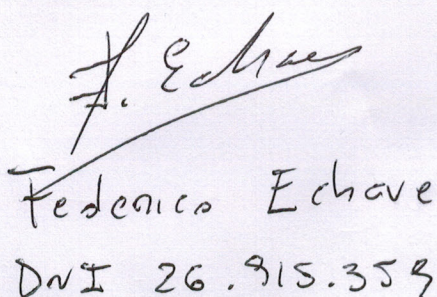 F. Echave
Federico Echave
DNI 26.915.359